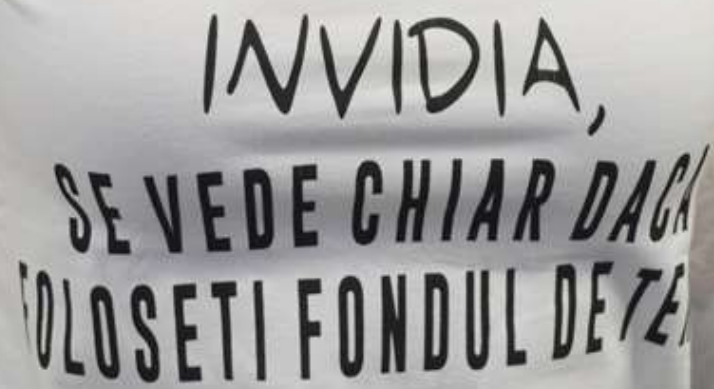 INVIDIA,
SE VEDE CHIAR DACA
FOLOSETI FONDUL DE